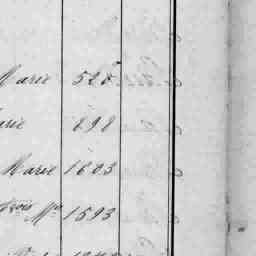 Marie 528
arie 898
Marie 1603
çois Mie 1593